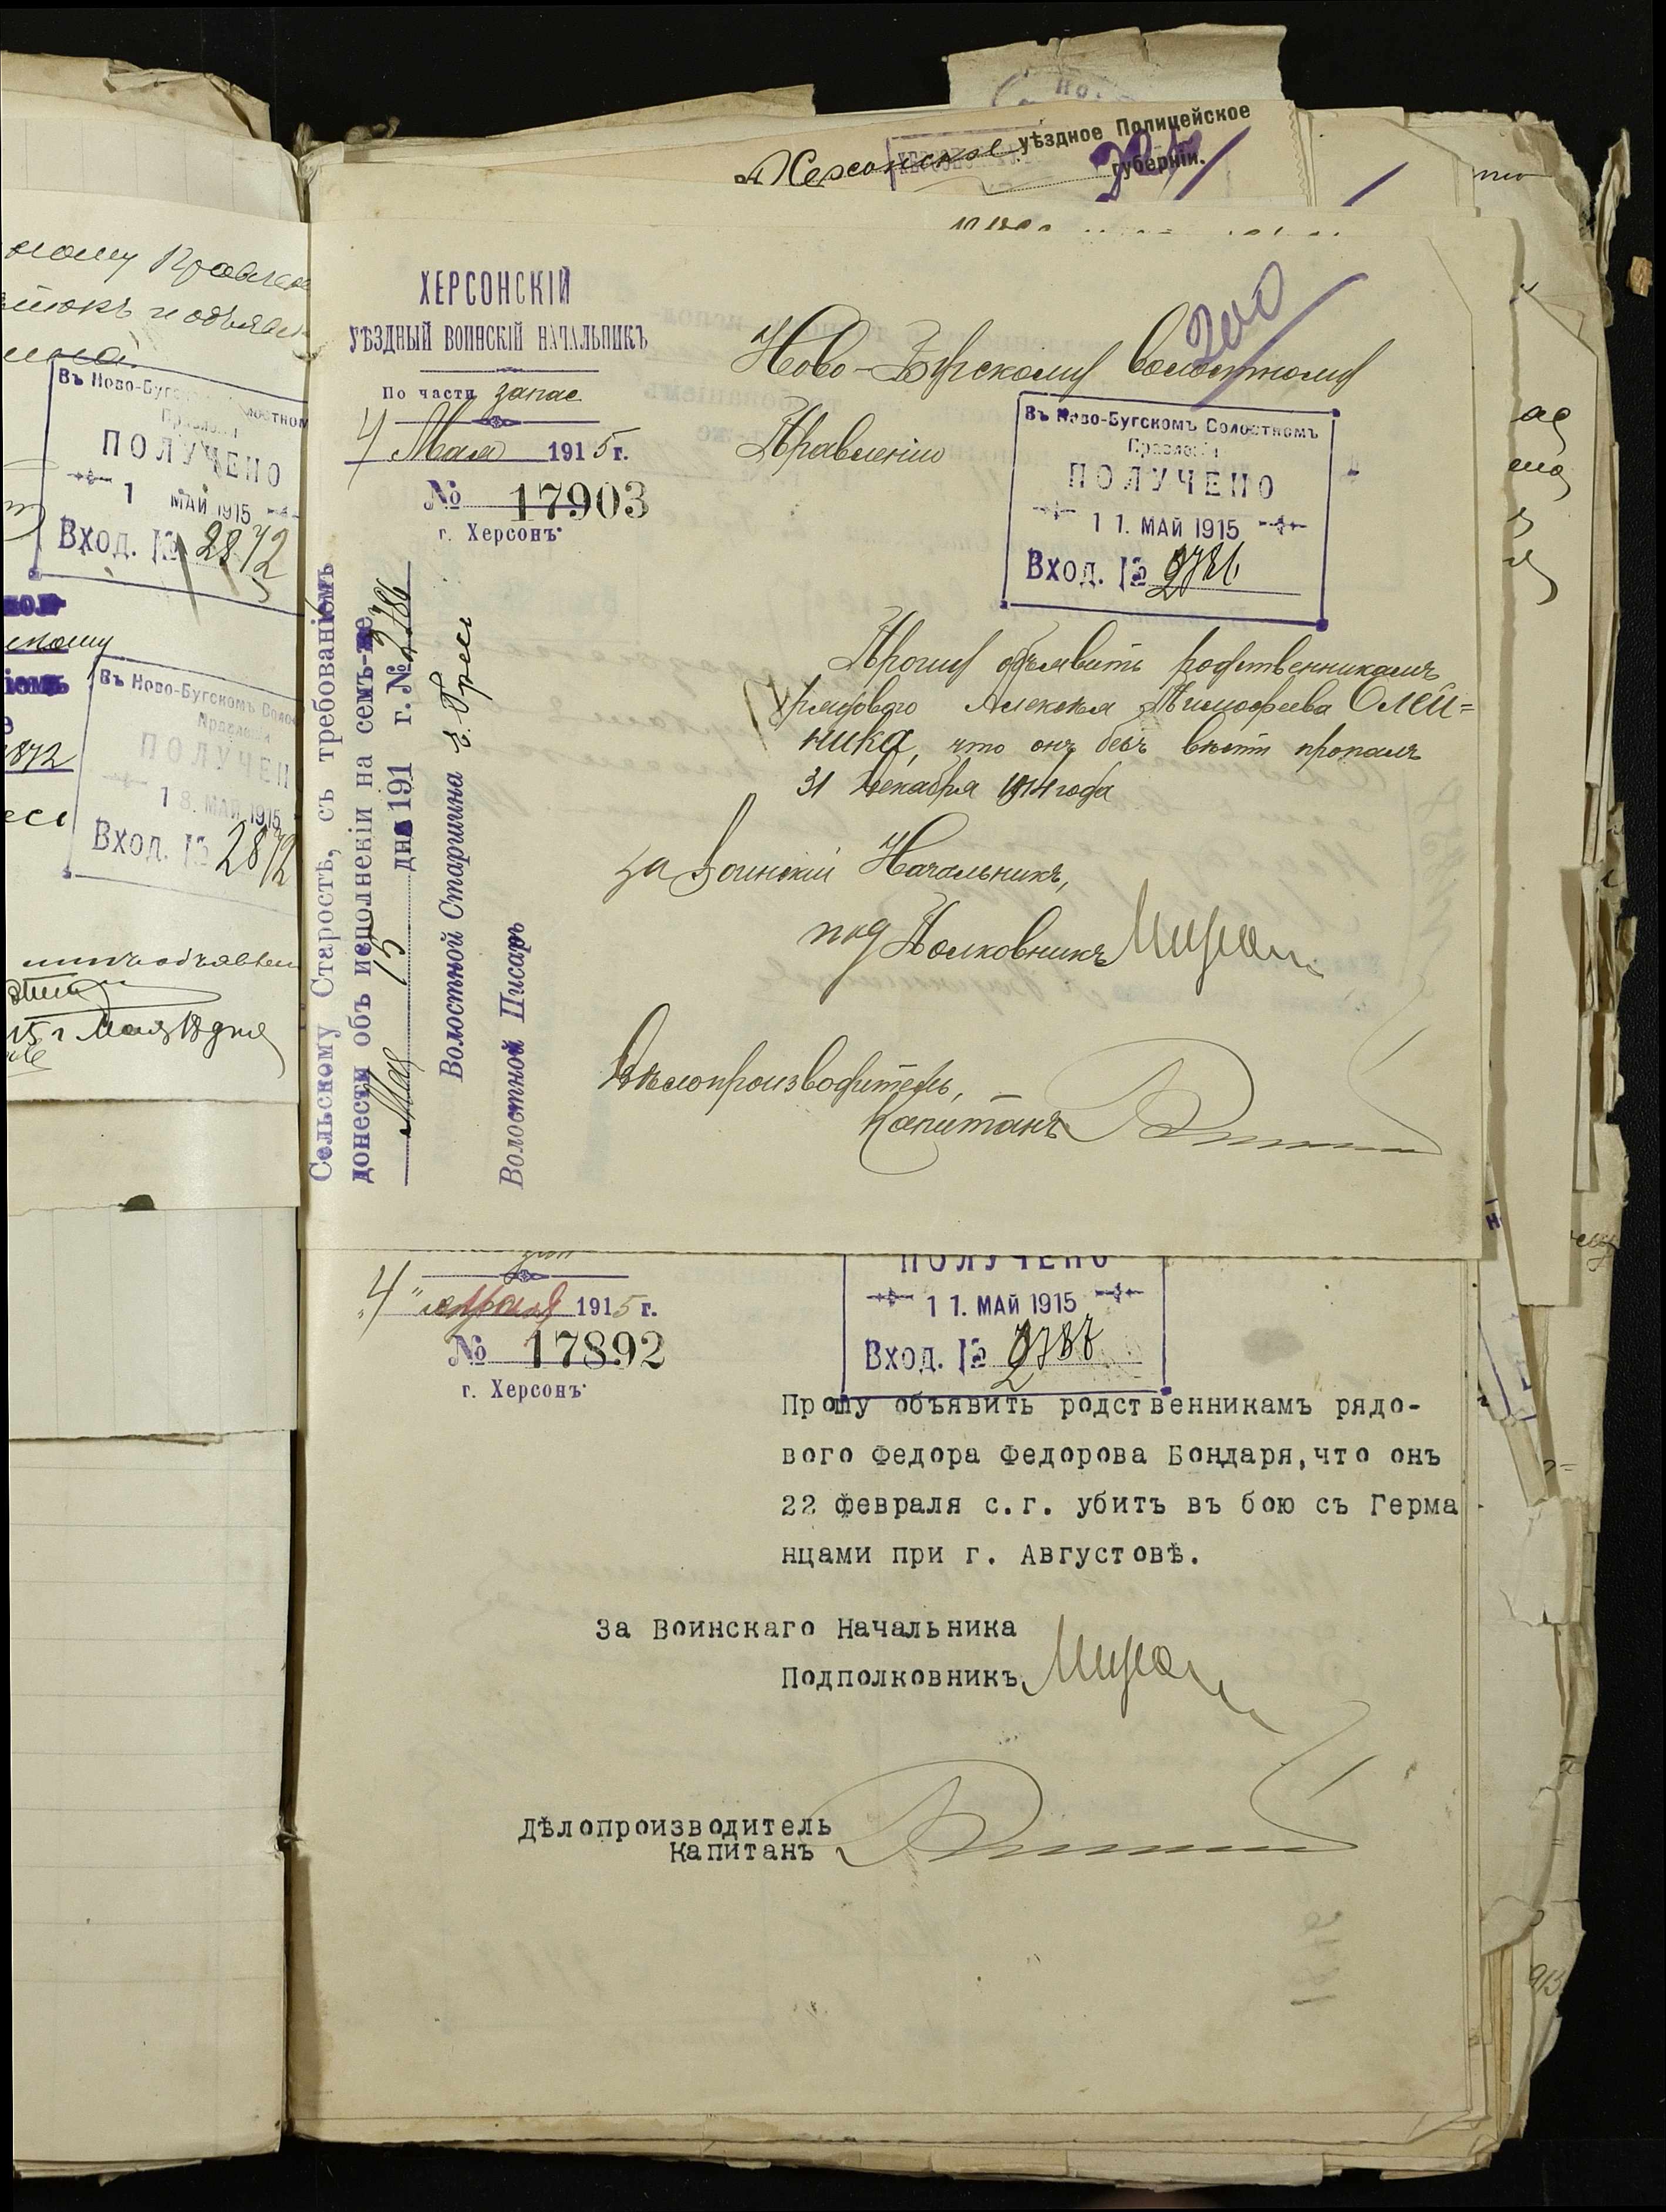 уѣздное Полицейское
Херсонское
губерніи.
ному Правлен
ПОЛУЧЕНО
1 МАЙ 1915
Вход. № 2872
Въ Ново-Бугскомъ Волос
Правленіи
ПОЛУЧЕН
18. МАЙ 1915
Вход. № 2872
15 г. Мая 18 дня
ХЕРСОНСКІЙ
УѢЗДНЫЙ ВОИНСКІЙ НАЧАЛЬНИКЪ
По части запас
4 Мая 1915 г.
№ 17903
г. Херсонъ
200
Ново-Бугскому Волостному
Правленію
Въ Ново-Бугскомъ Волостномъ
Правленіи
ПОЛУЧЕНО
11. МАЙ 1915
Вход. № 2786
Сельскому Старостѣ, съ требованіемъ
донести объ исполненіи на семъ-же
Мая 15 дня 191 г. № 2786
Волостной Старшина Е. Гресь
Волостной Писарь
Прошу объявить родственникамъ
рядового Алексѣя Тимофеева Олей=
ника, что онъ безъ вѣсти пропалъ
31 Декабря 1914 года
За Воинскій Начальникъ,
подПолковникъ
Дѣлопроизводитель,
Капитанъ
"4" апрѣля 1915 г.
№ 17892
г. Херсонъ
ПОЛУЧЕНО
11. МАЙ 1915
Вход. № 2787
Прошу объявить родственникамъ рядо-
вого Федора Федорова Бондаря, что онъ
22 февраля с.г. убитъ въ бою съ Герма
нцами при г. Августовѣ.
За Воинскаго Начальника
Подполковникъ
Дѣлопроизводитель
Капитанъ